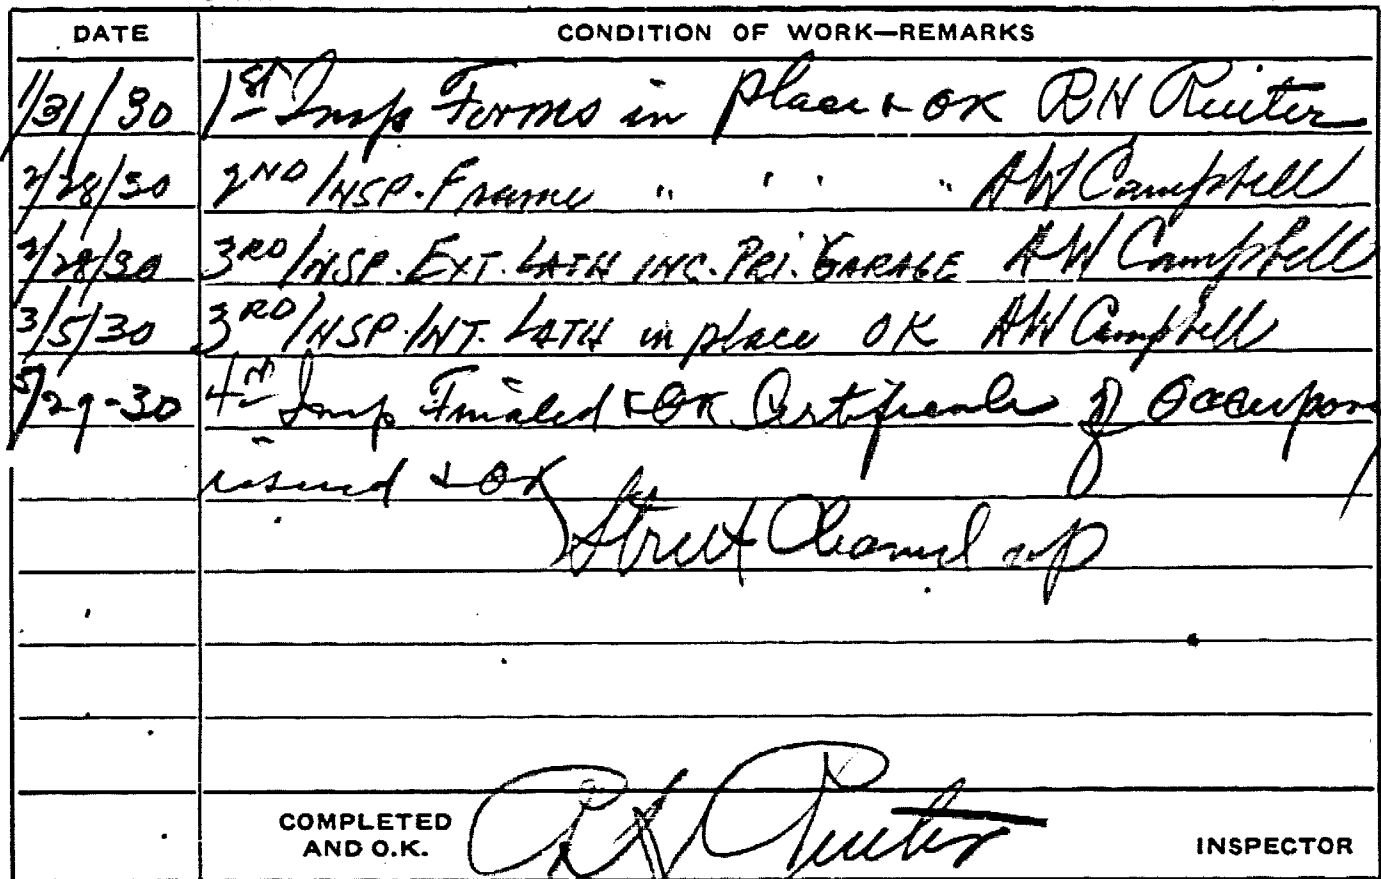 DATE CONDITION OF WORK—REMARKS
1/31/30 1st Insp Forms in place & OK RH Reiter
2/28/30 2ND INSP. Frame " " " " AW Campbell
2/28/30 3RD INSP. EXT. LATH INC. PRI. GARAGE AW Campbell
3/5/30 3RD INSP. INT. LATH in place OK AW Campbell
5/29-30 4th Insp Finaled & OK Certificate of Occupancy
issued & OK
Street Cleaned up
COMPLETED RH Reiter
AND O.K. INSPECTOR